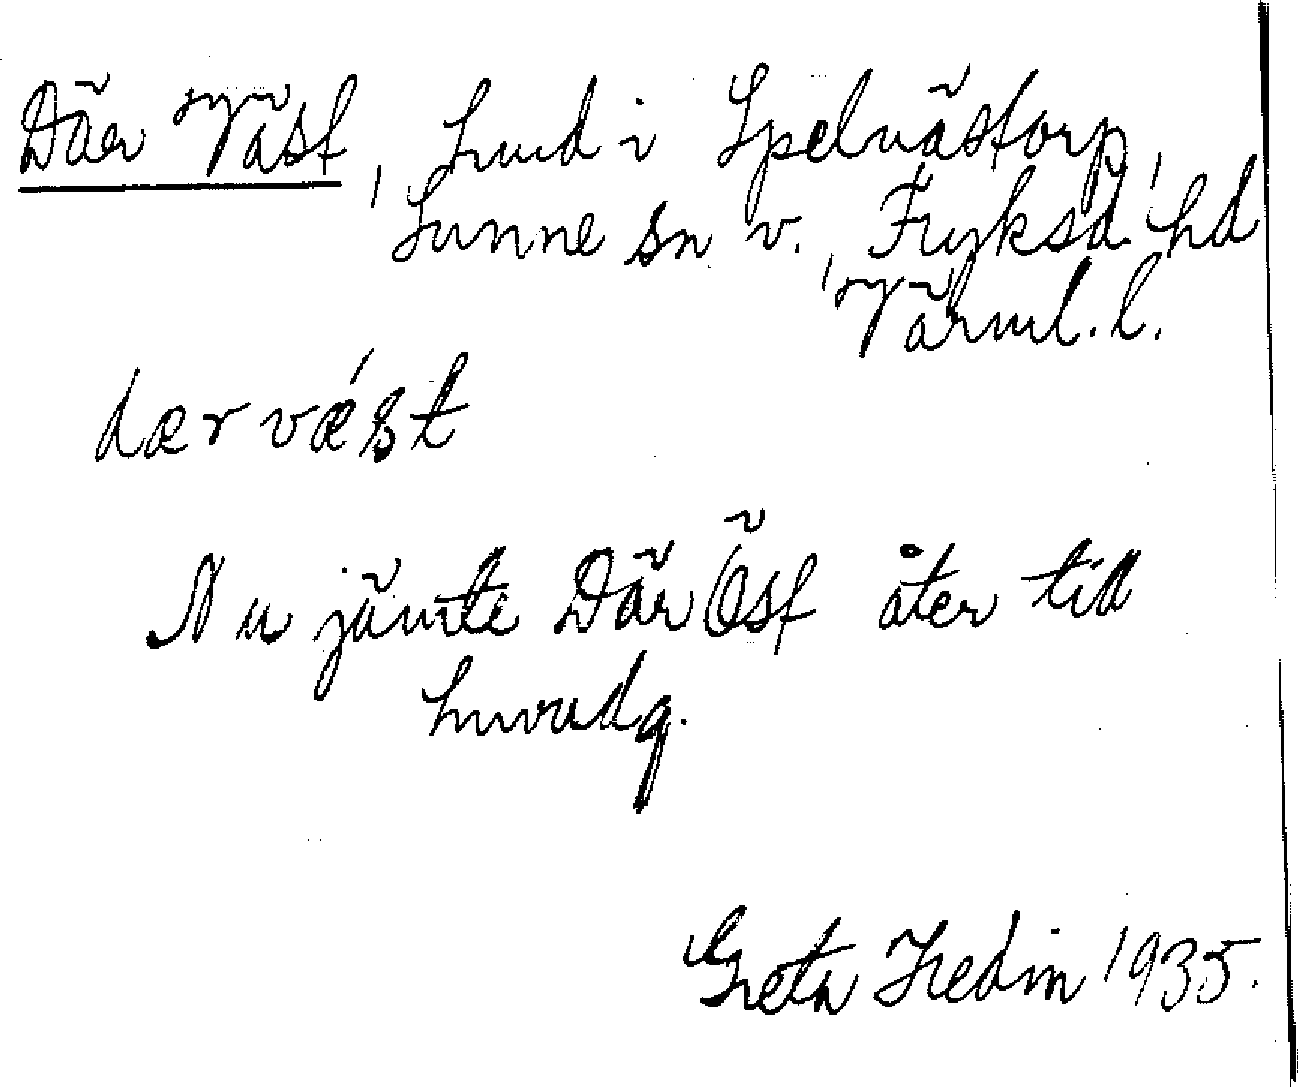 Där Väst, hmd i Spelnästorp,
Sunne sn v., Fryksd. hd
Värml. l.
dær væ´st
Nu jämte Där Öst åter till
huvudg.
Greta Hedin 1935.